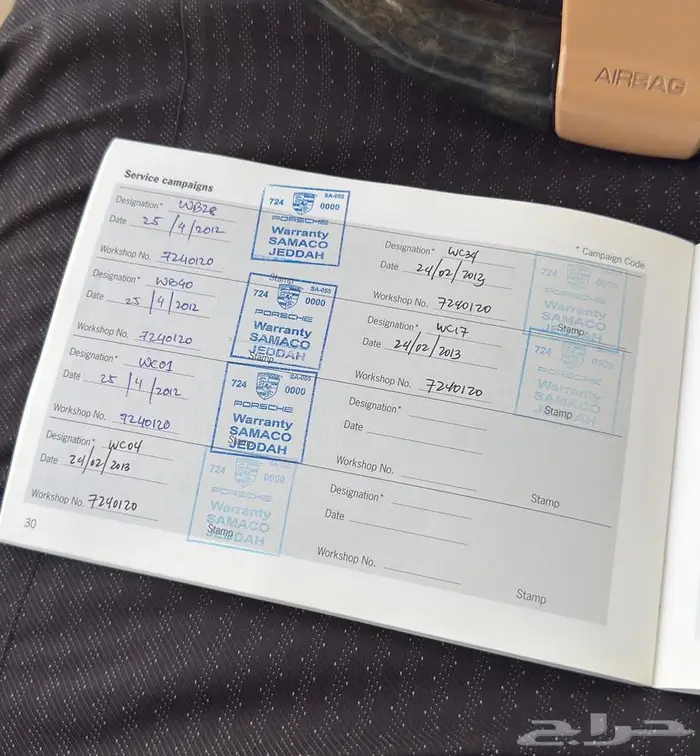 AIRBAG
Service campaigns
* Campaign Code
Designation* WB28
Date 25/4/2012
Workshop No. 7240120
Stamp
724 SA-055 0000
PORSCHE
Warranty
SAMACO
JEDDAH
Designation* WB40
Date 25/4/2012
Workshop No. 7240120
Stamp
724 SA-055 0000
PORSCHE
Warranty
SAMACO
JEDDAH
Designation* WC01
Date 25/4/2012
Workshop No. 7240120
Stamp
724 SA-055 0000
PORSCHE
Warranty
SAMACO
JEDDAH
Designation* WC04
Date 24/02/2013
Workshop No. 7240120
Stamp
724 0000
PORSCHE
Warranty
SAMACO
JEDDAH
Designation* WC34
Date 24/02/2013
Workshop No. 7240120
Stamp
724 0000
PORSCHE
Warranty
SAMACO
JEDDAH
Designation* WC17
Date 24/02/2013
Workshop No. 7240120
Stamp
724 0000
PORSCHE
Warranty
SAMACO
JEDDAH
Designation*
Date
Workshop No.
Stamp
Designation*
Date
Workshop No.
Stamp
30
حراج